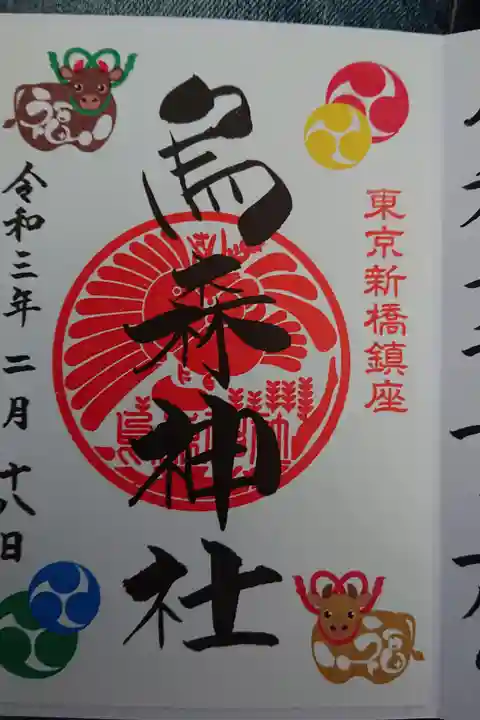 東京新橋鎮座
烏森神社
令和三年 二月 十八日
福
福